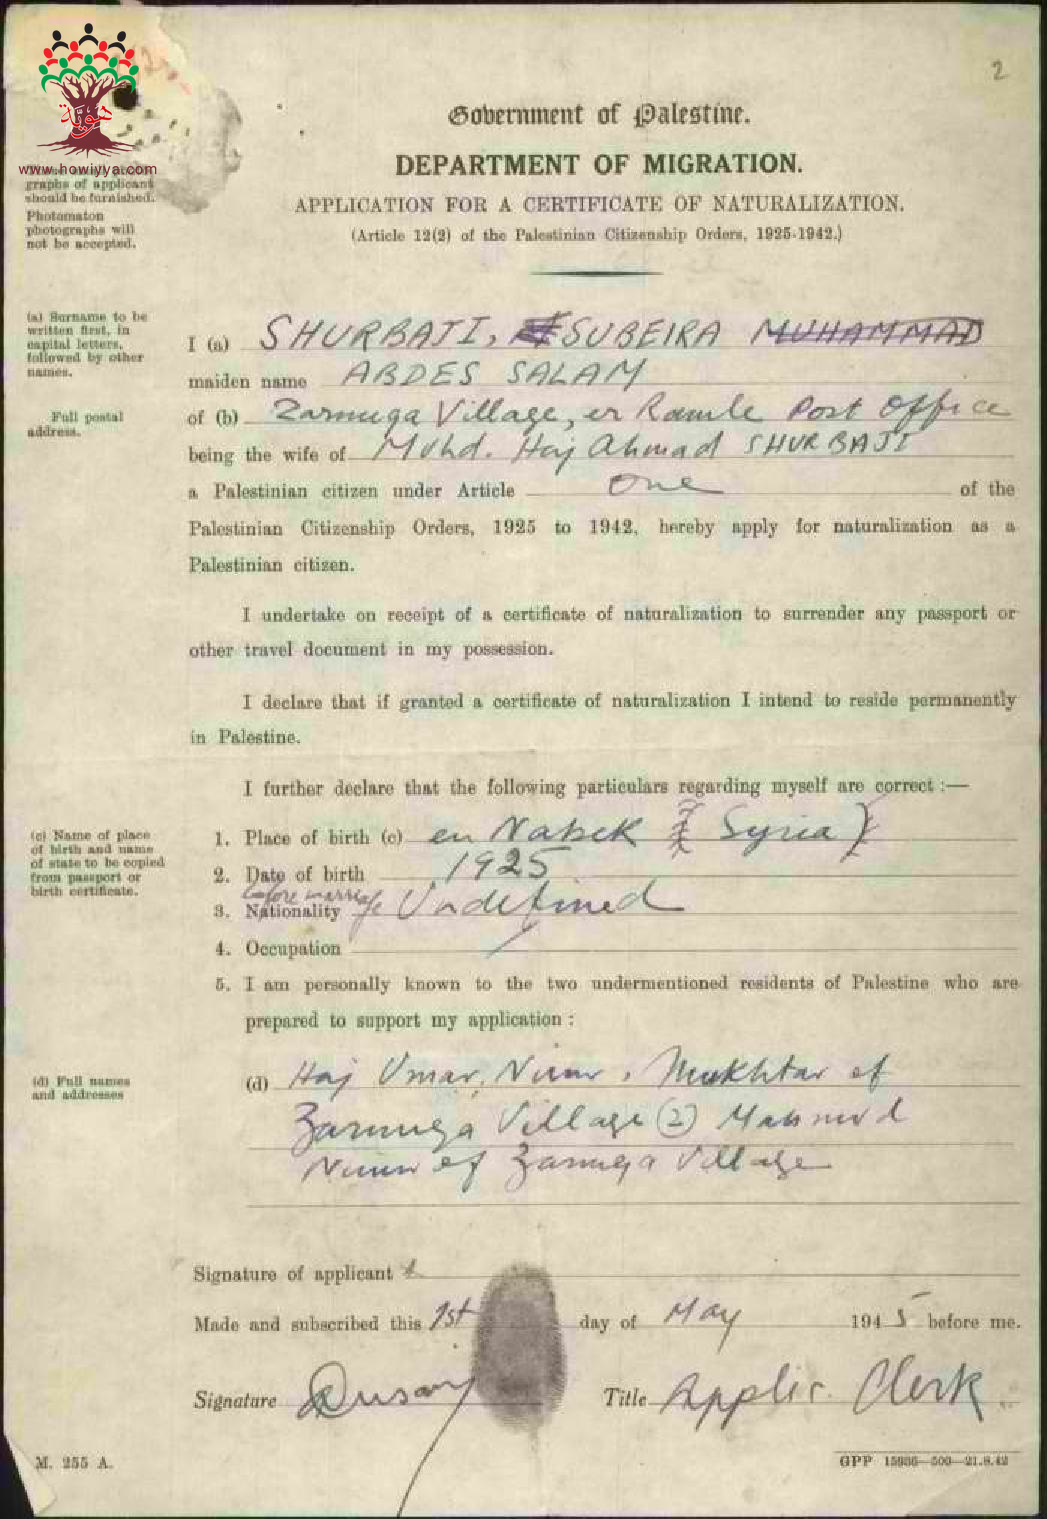 2
هوية
www.howiyya.com
Government of Palestine.
DEPARTMENT OF MIGRATION.
APPLICATION FOR A CERTIFICATE OF NATURALIZATION.
(Article 12(2) of the Palestinian Citizenship Orders, 1925-1942.)
graphs of applicant
should be furnished.
Photomaton
photographs will
not be accepted.
(a) Surname to be
written first, in
capital letters,
followed by other
names.
I (a) SHURBAJI, SUBEIRA MUHAMMAD
maiden name ABDES SALAM
Full postal
address.
of (b) Zarnuga Village, er Ramle Post Office
being the wife of Muhd. Haj Ahmad SHURBAJI
a Palestinian citizen under Article one of the
Palestinian Citizenship Orders, 1925 to 1942, hereby apply for naturalization as a
Palestinian citizen.
I undertake on receipt of a certificate of naturalization to surrender any passport or
other travel document in my possession.
I declare that if granted a certificate of naturalization I intend to reside permanently
in Palestine.
I further declare that the following particulars regarding myself are correct :—
(c) Name of place
of birth and name
of state to be copied
from passport or
birth certificate.
1. Place of birth (c) en Nabek (Syria)
2. Date of birth 1925
before marriage
3. Nationality Undefined
4. Occupation /
5. I am personally known to the two undermentioned residents of Palestine who are
prepared to support my application :
(d) Full names
and addresses
(d) Haj Umar Nimr, Mukhtar of
Zarnuga Village (2) Mahmud
Nimr of Zarnuga Village
Signature of applicant
Made and subscribed this 1st day of May 1945 before me.
Signature Title Applic. Clerk
M. 255 A.
GPP 15936—500—21.8.42